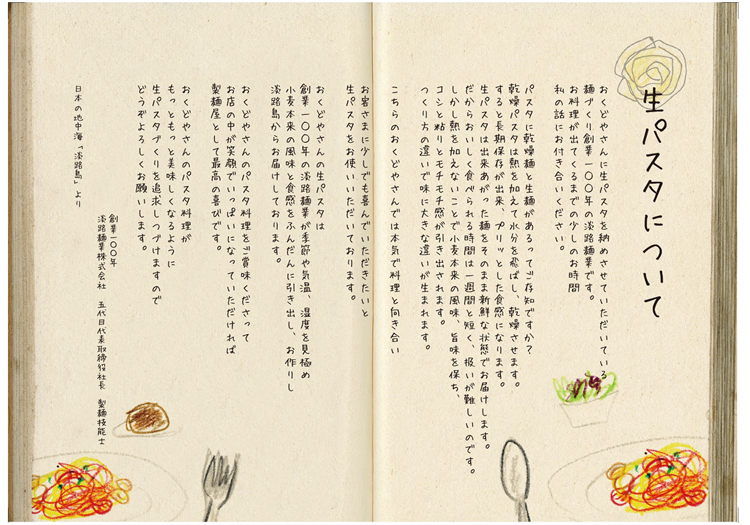 生パスタについて
おくどやさんに生パスタを納めさせていただいている
麺づくり創業一〇〇年の淡路麺業です。
お料理が出てくるまでの少しのお時間
私の話にお付き合いください。
パスタに乾燥麺と生麺があるってご存知ですか？
乾燥パスタは熱を加えて水分を飛ばし、乾燥させます。
すると長期保存が出来、プリッとした食感になります。
生パスタは出来あがった麺をそのまま新鮮な状態でお届けします。
だからおいしく食べられる時間は一週間と短く、扱いが難しいのです。
しかし熱を加えないことで小麦本来の風味、旨味を保ち、
コシと粘りとモチモチ感が引き出されます。
つくり方の違いで味に大きな違いが生まれます。
こちらのおくどやさんでは本気で料理と向き合い
お客さまに少しでも喜んでいただきたいと
生パスタをお使いいただいております。
おくどやさんの生パスタは
創業一〇〇年の淡路麺業が季節や気温、湿度を見極め
小麦本来の風味と食感をふんだんに引き出し、お作りし
淡路島からお届けしております。
おくどやさんのパスタ料理をご賞味くださって
お店の中が笑顔でいっぱいになっていただければ
製麺屋として最高の喜びです。
おくどやさんのパスタ料理が
もっともっと美味しくなるように
生パスタづくりを追求しつづけますので
どうぞよろしくお願いします。
創業一〇〇年
淡路麺業株式会社 五代目代表取締役社長 製麺技能士
日本の地中海「淡路島」より